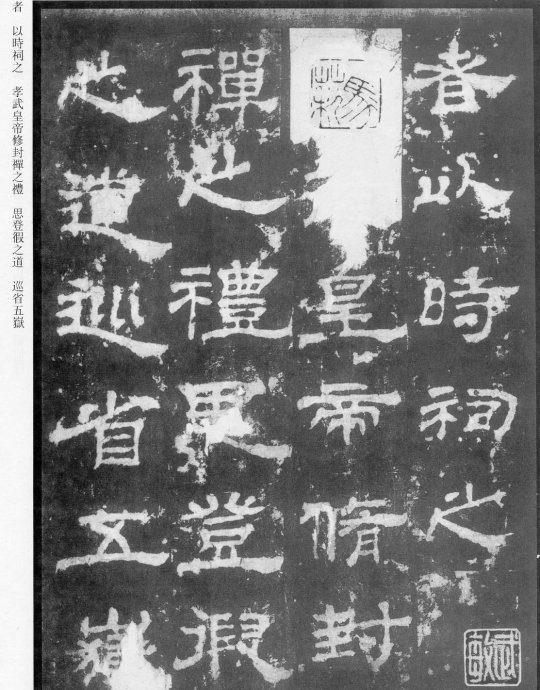 者以時祠之
皇帝脩封
禪之禮思登假
之道巡省五嶽
者　以時祠之　孝武皇帝修封禪之禮　思登假之道　巡省五嶽